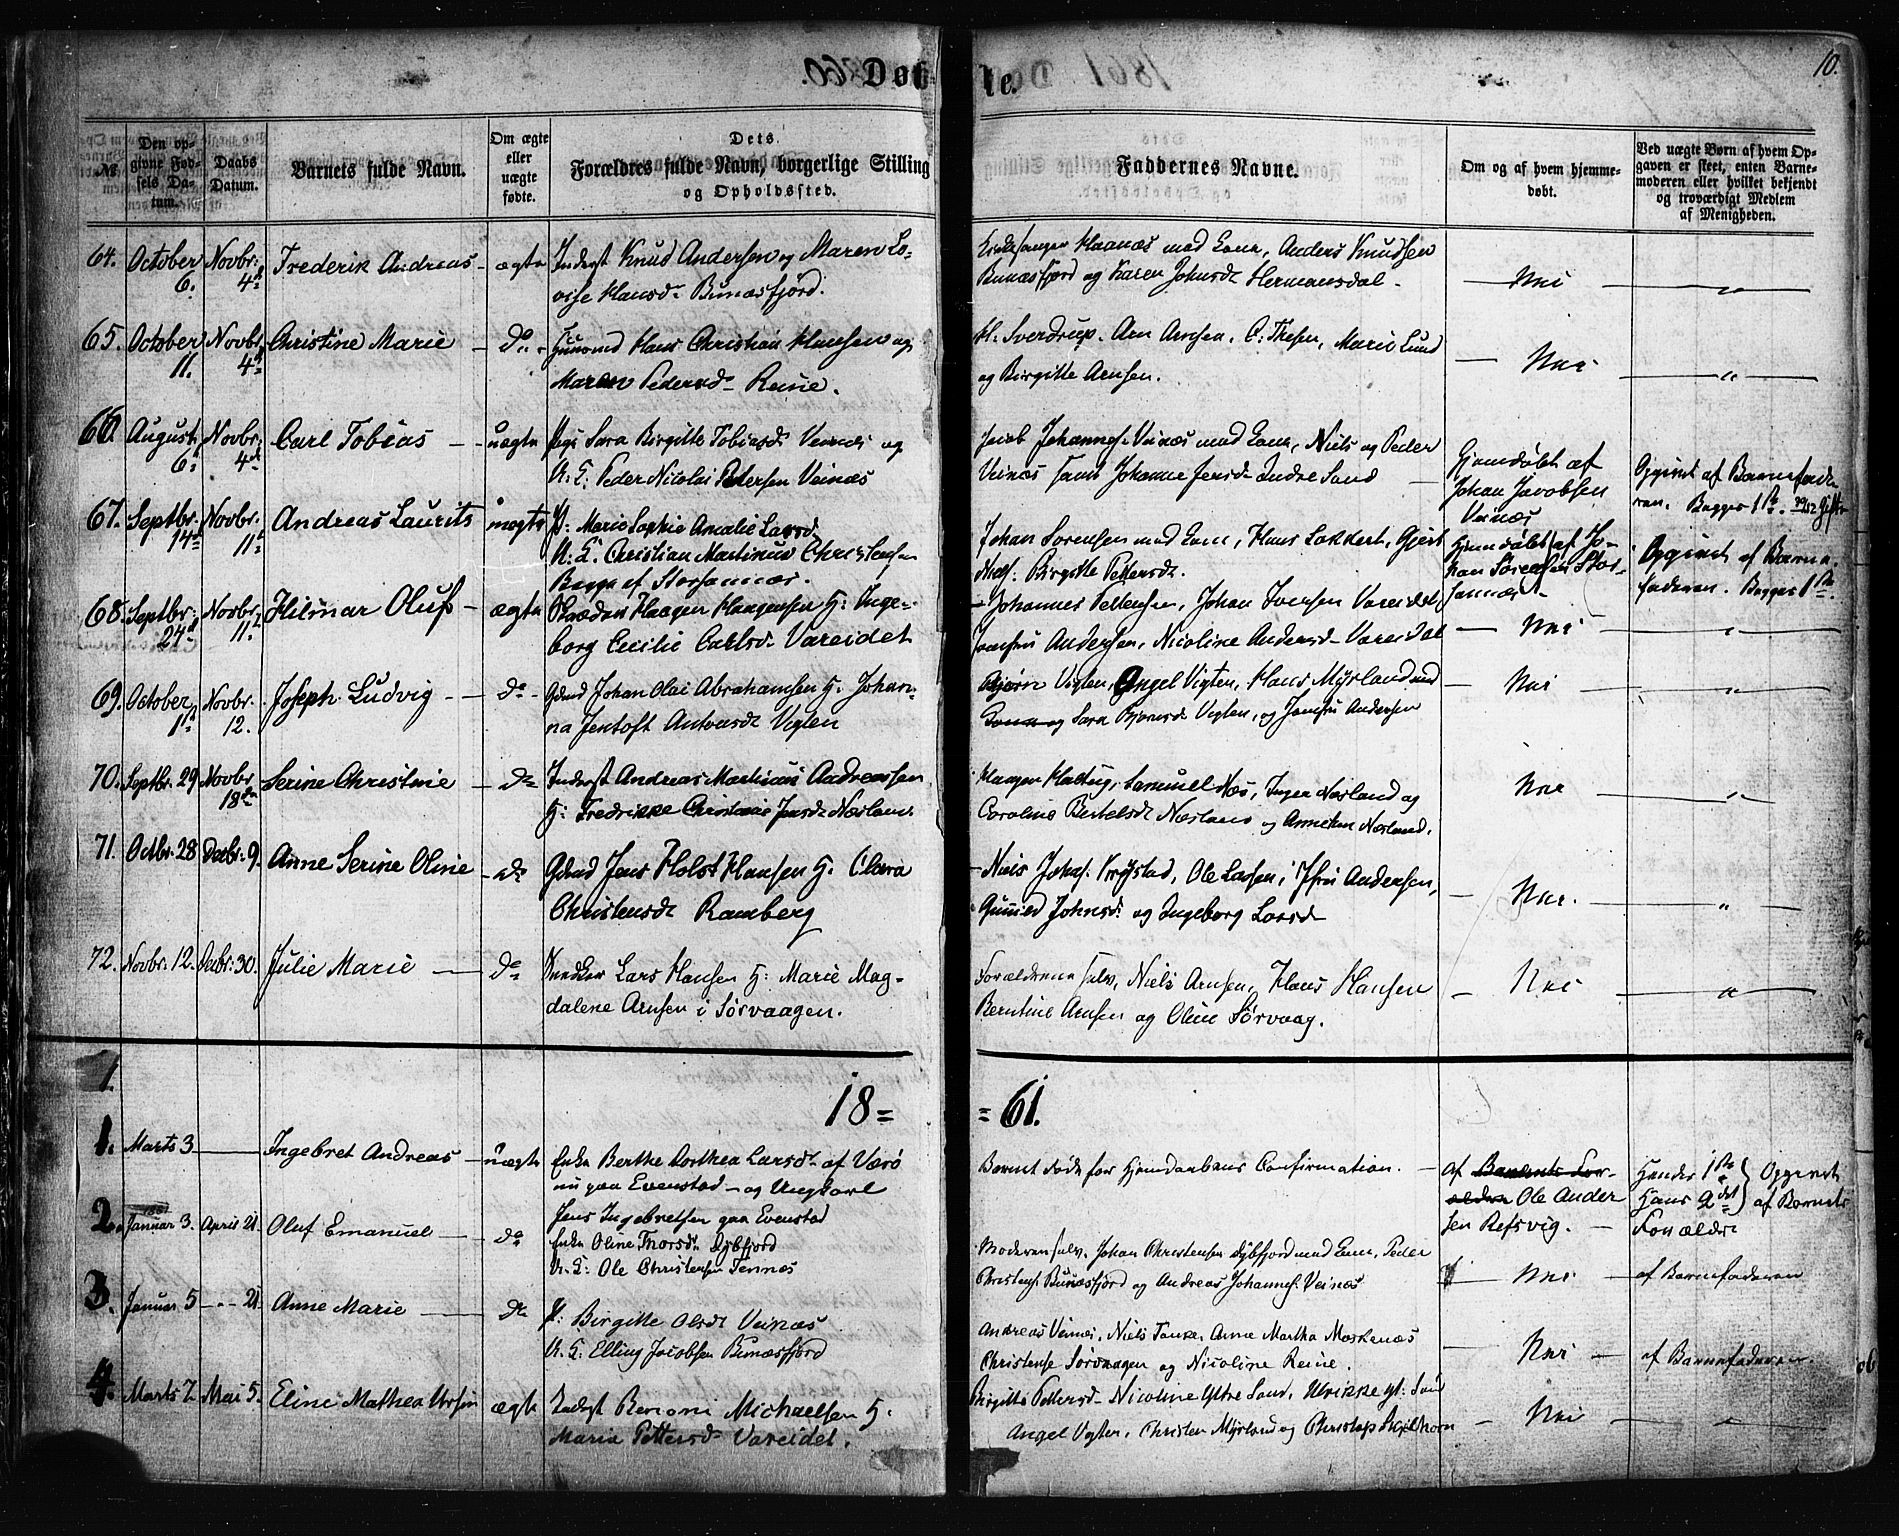 1860. Døbte.
10.
No.
Den opgivne Fødsels Datum.
Daabs Datum.
Barnets fulde Navn.
Om ægte eller uægte fødte.
Dets Forældres fulde Navn, borgerlige Stilling og Opholdssted.
Faddernes Navne.
Om og af hvem hjemmedøbt.
Ved uægte Børn af hvem Opgaven er skeet, enten Barnemoderen eller hvilket bekjendt og troværdigt Medlem af Menigheden.
64. October 6. Novbr. 4de Frederik Andreas - ægte Inderst Knud Andersen og Maren Lo-
vise Hansd. Bunæsfjord.
Kirkesanger Haanæs med Kone, Anders Knudsen
Bunæsfjord og Karen Johnsdr Hermansdal - Nei - "
65. October 11. Novbr. 4de Christine Marie - do - Huusmd Hans Christian Hansen og
Maren Pedersd. Reine.
H. Sverdrup. Arn Arnsen. C. Thesen, Marie Lund
og Birgitte Arnsen. - Nei - "
66. August 6. Novbr. 4de Carl Tobias - uægte Pige Sara Birgitte Tobiasd. Veinæs og
U. K. Peder Nicolai Pedersen Veinæs
Jacob Johannes. Veinæs med Kone, Niels og Peder
Veinæs samt Johanne Jensd. Indre Sund -
Hjemdøbt af
Johan Jacobsen
Veinæs
Opgivet af Barnefade-
ren. Begges 1ste.
67. Septbr. 14de Novbr. 11te Andreas Laurits uægte P: Marie Sophie Amalie Larsd.
U. K. Christian Martinus Christensen
Begge af Storjannæs.
Johan Sørensen med Kone, Hans Lokkert, Gjert
Birgitte Pettersdr.
Hjemdøbt af Jo-
han Sørensen Stor-
jannæs -
Opgivet af Barne-
faderen. Begges 1ste.
68. Septbr. 24de Novbr. 11te Hilmar Oluf - ægte Haagen Haagensen H: Inge-
borg Cecilie Carlsdr Vareidet
- Johannes Pettersen, Johan Iversen Vareidet,
Andersen, Nicoline Andersd. Vareidet - Nei - "
69. October 1ste Novbr. 12. Joseph Ludvig - do - Gdmd Johan Olai Abrahamsen H. Johan-
na Jentoft Antonsdr Vigten
Bjørn Vigten, Angel Vigten, Hans Myrland med
Kone og Sara Bjørnsdr Vigten, og Andersen - Nei - "
70. Septbr. 29 Novbr. 18de Serine Christine - do Inderst Andreas Martinus Andreassen
H: Fredrikke Christine Jensdr Næsland.
Haagen Haltug, Samuel Næs, Inger Næsland og
Caroline Bertelsdr Næsland og Anneken Næsland. Nei - "
71. Octbr. 28 Decbr. 9. Anne Serine Oline - do Gdmd Jens Holst Hansen H. Clara
Christensdr Ramberg
- Niels Johns. Krystad, Ole Larsen, Andersen,
Johnsd. og Ingeborg Larsd. - Nei. - "
72. Novbr. 12. Decbr. 30. Julie Marie - do Snedker Lars Hansen H: Marie Mag-
dalene Arnsen i Sørvaagen.
Forældrene selv, Niels Arnsen, Hans Hansen
Berntine Arnsen og Oline Sørvaag. - Nei - "
1.
18=
=61.
1. Marts 3 - Ingebret Andreas - uægte Enke Berthe Dorthea Larsdr af Værø
nu paa Evenstad - og Ungkarl
Jens Ingebretsen paa Evenstad
Barnet døde før Hjemdaabens Confirmation. -
af Barnets For-
ældre Ole Ander
sen Refsvig. -
Hendes 1ste
Hans 2det } Opgivet af Barnets
Forældre
2. Januar 3. April 21. Oluf Emanuel - do Enke Oline Thorsd. Dybfjord
U. K: Ole Christensen Tennes
Moderen selv, Johan Christensen Dybfjord med Kone, Peder
Christens. Bunæsfjord og Andreas Johannes. Veinæs - Nei - af Barnefaderen
3. Januar 5 -"- 21. Anne Marie - do P: Birgitte Olsdr Veinæs
U. K: Elling Jacobsen Bunæsfjord
Andreas Veines, Niels Tanke, Anne Martha Moskenæs
Christense Sørvaagen og Nicoline Reine. - Nei - af Barnefaderen.
4. Marts 7. Mai 5. Eline Mathea ægte Inderst Benoni Michaelsen H:
Maria Pettersdr Vareidet.
Birgitte Pettersd. Nicoline Ytre Sund, Ulrikke yt: Sund
Angel Vigten, Christen Myrland og Christop Skjelhorn - Nei - "